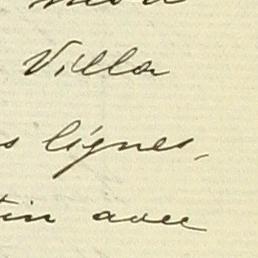 Villa
s lignes,
tin avec